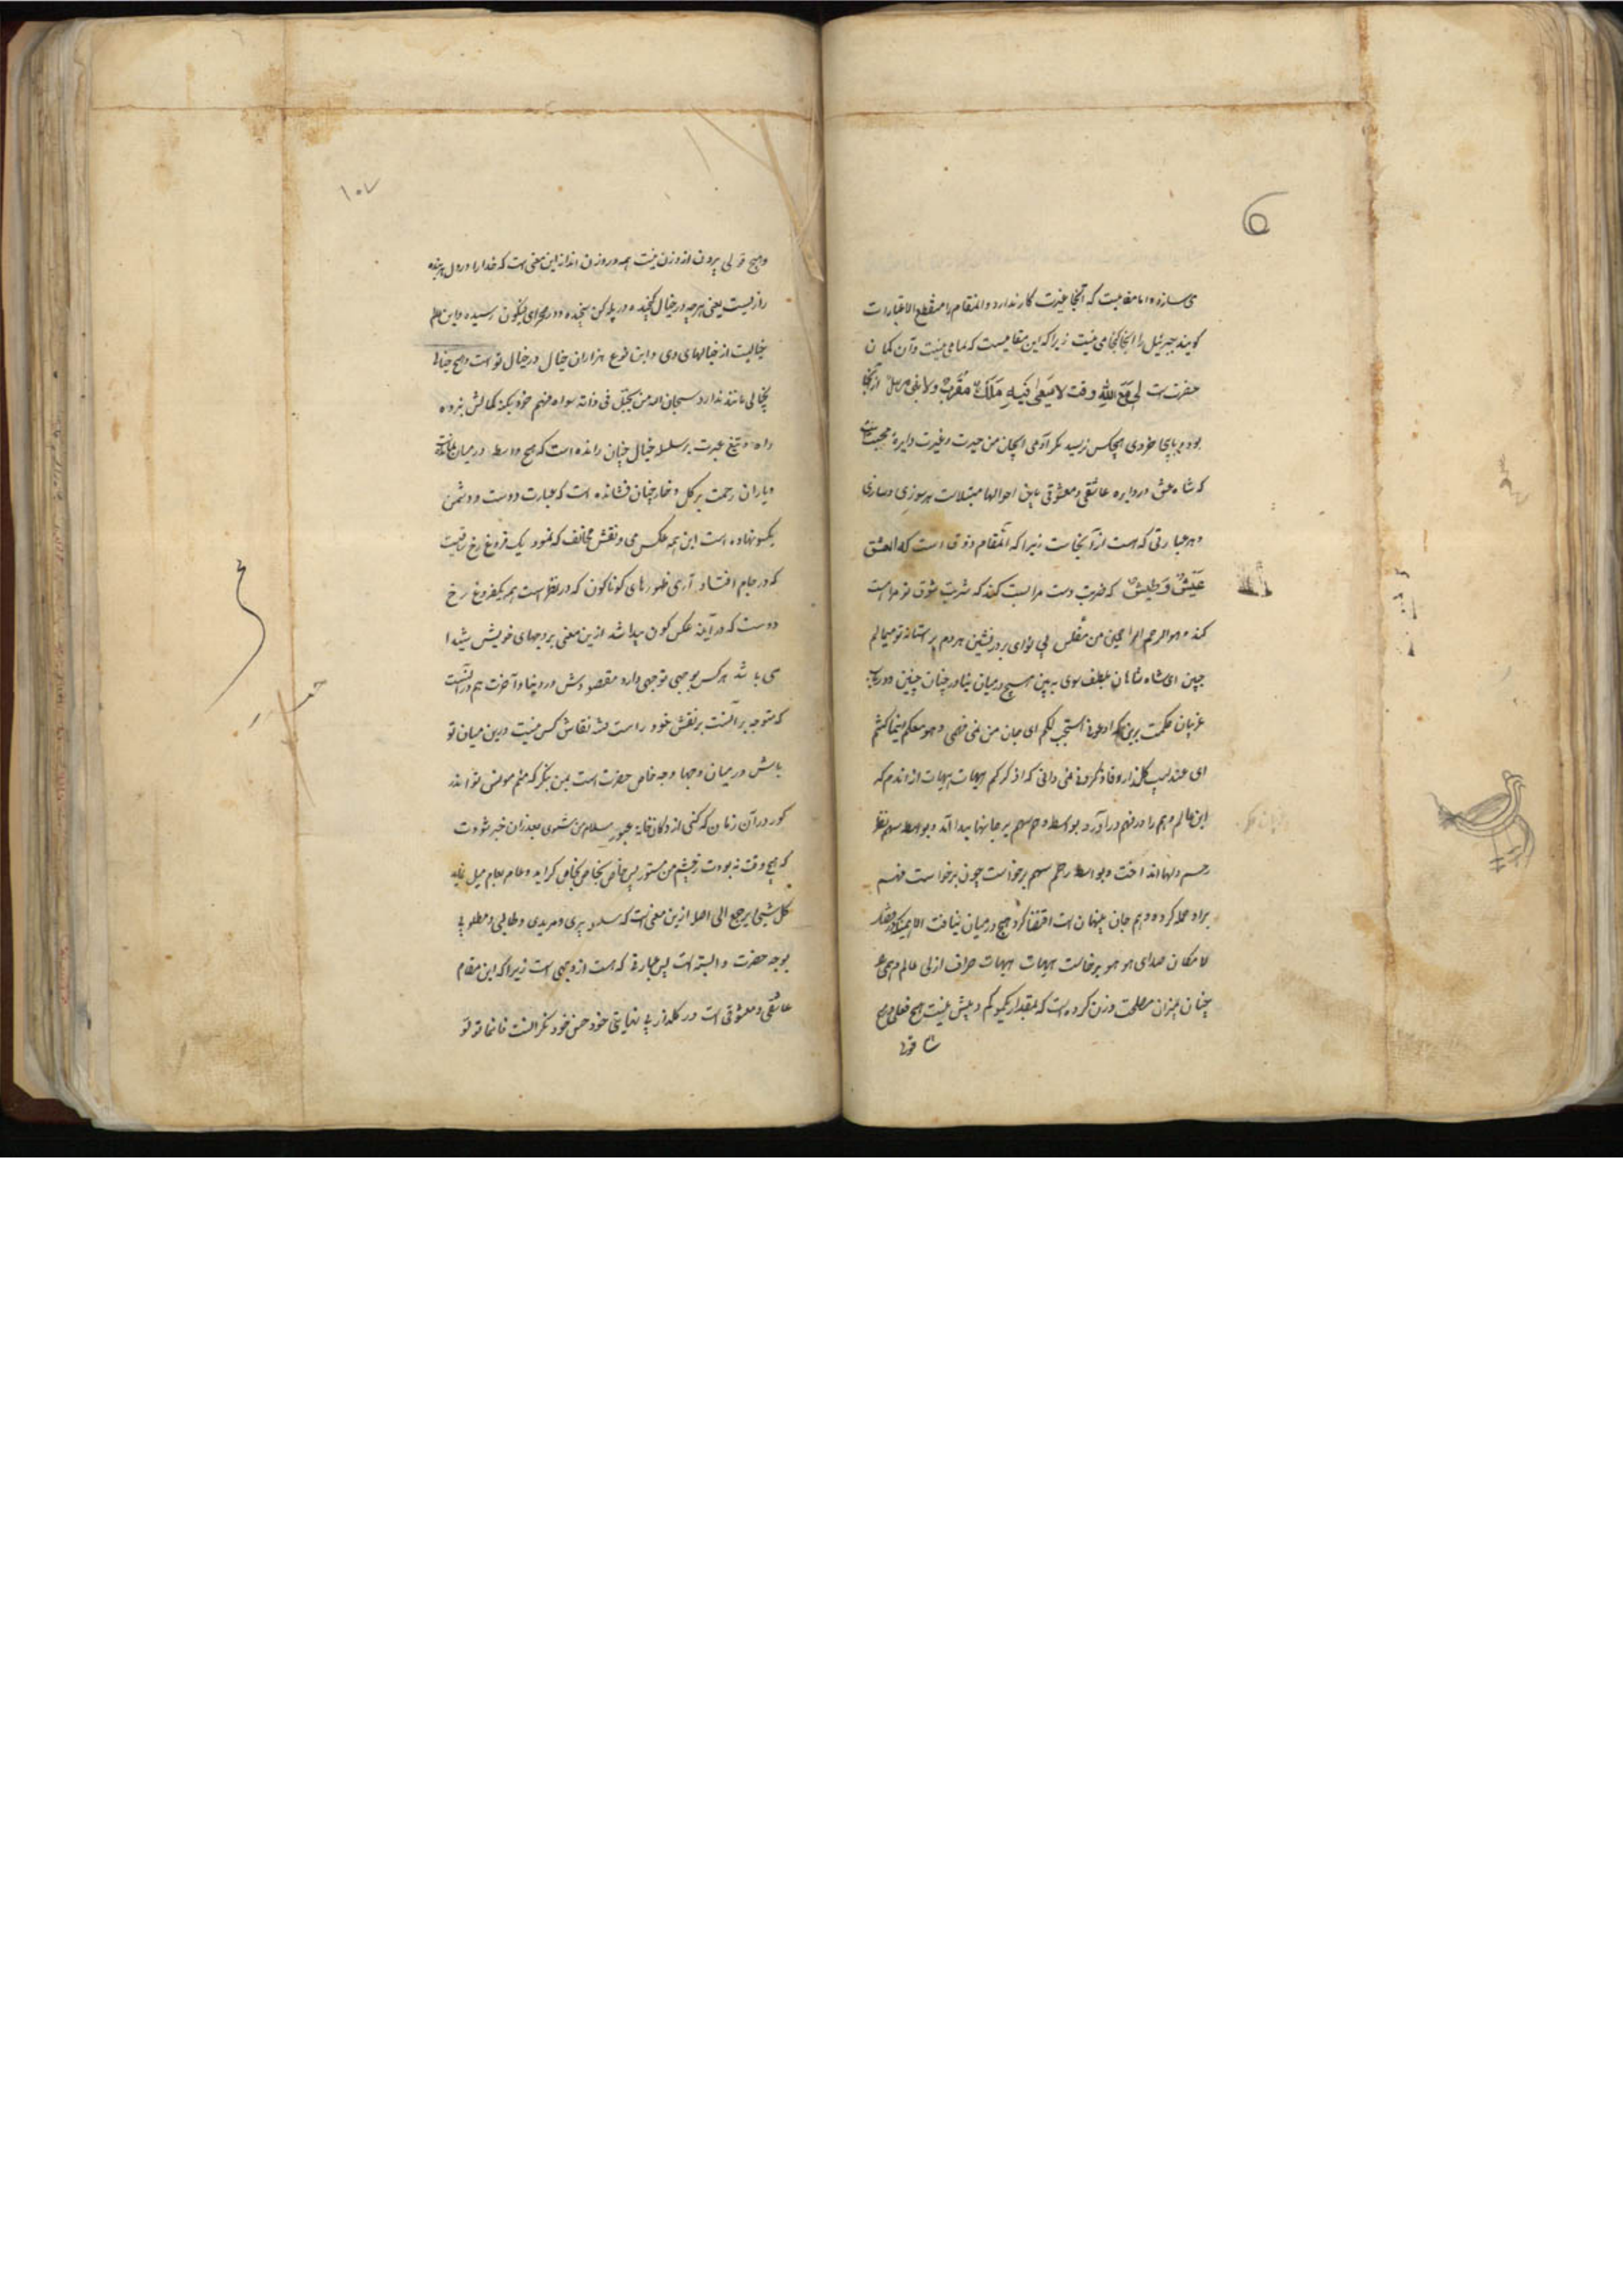 می سازد اما مقامیست که آنجا غیرت کار ندارد و آنمقام را منقطع الاعتبارات
کویند جبرئیل را آنجا کنجامی نیست زیرا که این مقامیست که مامی نیست و آن کمان
حضرتست لی مَعَ اللهِ وقت لا یَسَعُنی فیهِ مَلَکٌ مُقَرَّبٌ ولا نبی مرسل از آنجا
بود و با بجا خودی هیچکس نرسید مکر آدمی ای جان من حیرت و غیرت دایرهٔ محبت است
که شاه عشق در دایره عاشقی و معشوقی باین احوالها مبتلاست بهر سوزی و سازی
و هر عبارتی که هست از آنجاست زیرا که آنمقام ذوقی است که العشق
عَیشٌ وَ طَیشٌ که ضربت دست مرا بست کند که شربت شوق تو مراست
کند و هو الرحم الراحمین من مفلس بی نوای بر در نشین هردم بر ستانه تو میمالم
جبین ای شاه شاهان بلطف سوی به بین هیچ در میان نیاور چنان چنین دور باب
عزیزان حکمت برین که ادعونی استجب لکم ای جان من نمی فهمی و هو معکم اینما کنتم
ای عندلیب کلزار وفا فاذکرونی نمی دانی که اذکرکم هیهات هیهات از اندم که
این عالم وهم را در فهم در آورد بواسطه وهم سهم بر جانها پیدا آمد و بواسطه سهم نظر
رحم در لها انداخت و بواسطه رحم سهم برخواست چون برخواست فهم
براو عملا کرده وهم جان پنهان است اقتضا کرد هیچ در میان نیافت الا
لا مکان صدای هو هو برخاست هیهات هیهات صراف ازلی عالم وهمی
چنان بمیزان مصلحت وزن کرده است که بمقدار یکمو کم و بیش نیست هیچ فعلی و هیچ
۱۰۷
وهیچ قولی بیرون از وزن نیست همه در وزن اند از این معنی است که خدا را در دل هر بنده
رازیست یعنی هر چه در خیال کنجیده در پله کن سنجیده و در مجرای فیکون رسیده و این عالم
خیالیست از خیالهای وی و این نوع هزاران خیال در خیال تو است و هیچ خیالی
بخیالی مانند ندارد سبحان الله من یتجلی فی ذاته سواه فهم خرد بکنه کمالش نبرده
راه و تیغ عبرت بر سلسله خیال چنان رانده است که هیچ واسطه در میان نمانده
و باران رحمت بر کل و خار چنان فشانده است که عبارت دوست و دشمن
یکسو نهاده است این همه عکس می و نقش مخالف که نمود یک فروغ رخ ساقیست
که در جام افتاد آری ظهورهای کوناکون که در نظر است همه یکفروغ رخ
دوست که در آینه عکس کون پیدا شد از ین معنی بر وجهای خویش شیدا
می باشد هر کس بوجهی توجهی دارد مقصودش در دنیا و آخرت هم در آنست
که متوجه بر آنست بر نقش خود راست شد نقاش کس نیست درین میان تو
باش در میان وجها وجه خاص حضرت است بمن بنکر که منم مونس تو اندر
کور در آن زمان که کنی از دکان خانه عبور سلام من شنوی بعد از آن خبر شودت
که هیچ وقت نه بودت زچشم من مستور پس خاص بخاص کراید و عام بعام میل نماید
کل شیئ یرجع الی اصله از ین معنی است که سلسله پیری و مریدی و طالبی و مطلوبی
بوجه حضرت وابسته است پس عبارة که هست از وجهی است زیرا که این مقام
عاشقی و معشوقی است در کلدار بی نهایتی خود حسن خود نکرانست فاینما تولو